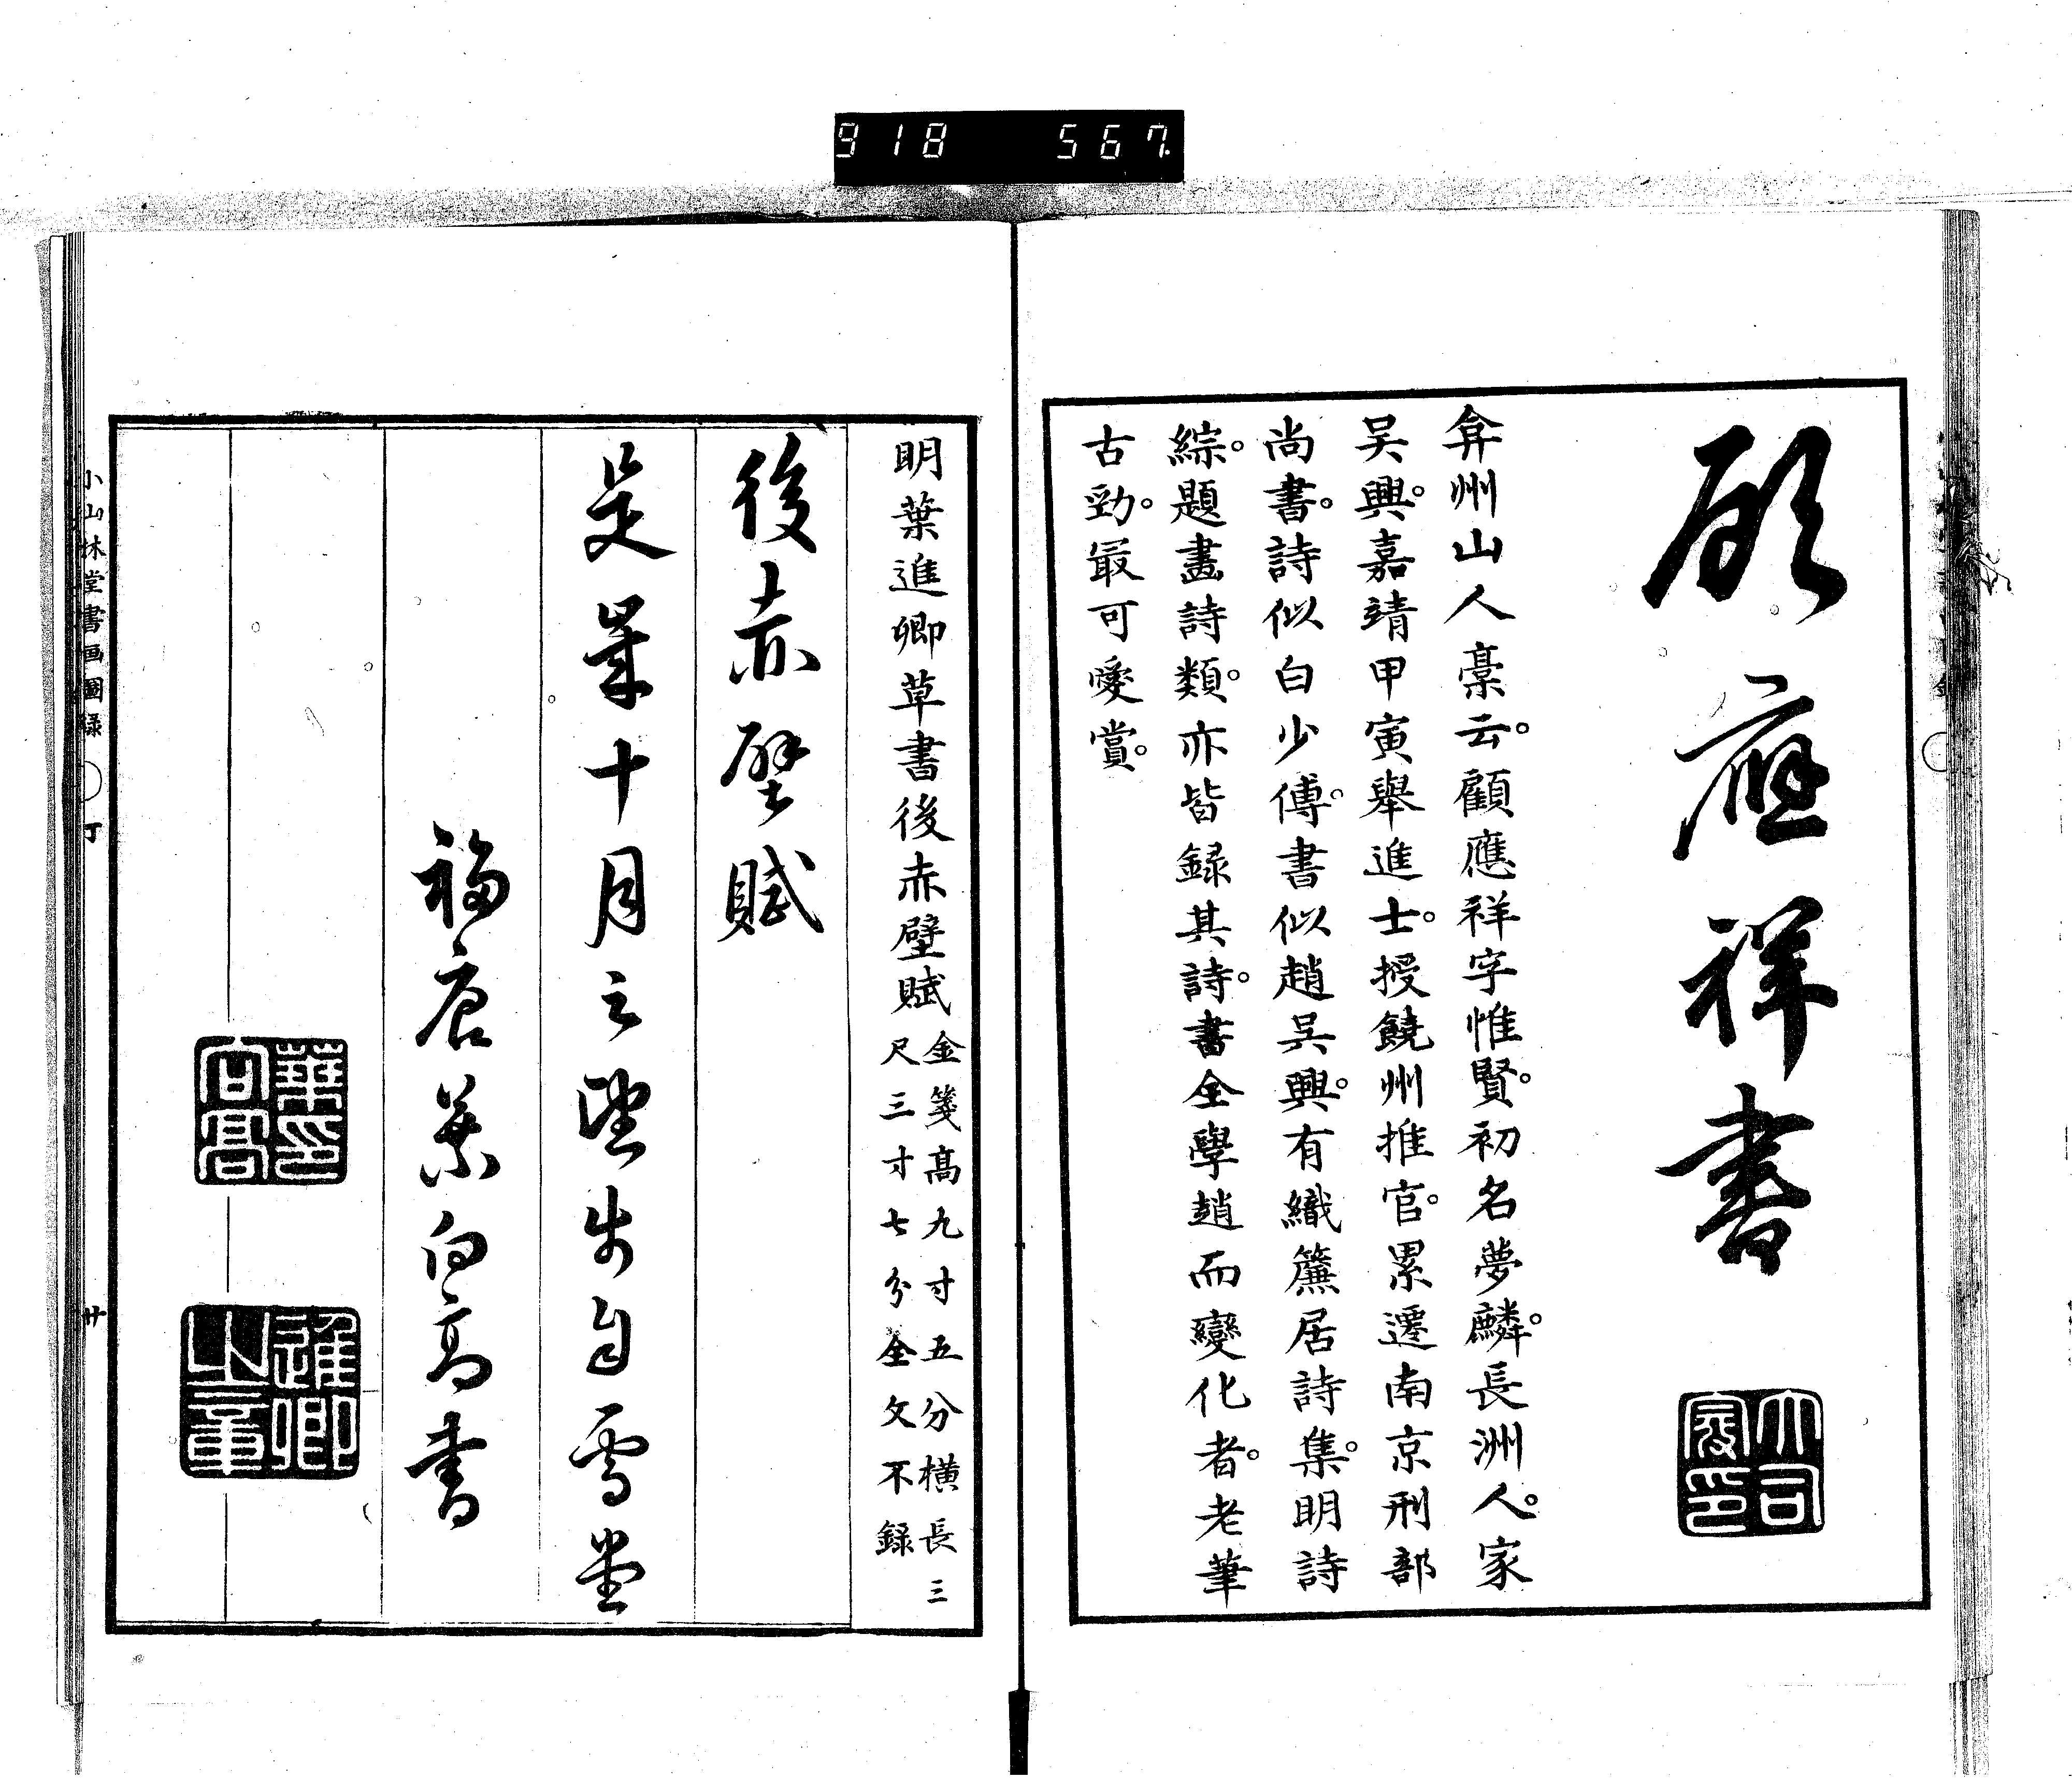 918 567
顧應祥書
弇州山人稾云。顧應祥字惟賢。初名夢麟。長洲人。家
吴興。嘉靖甲寅舉進士。授饒州推官。累遷南京刑部
尚書。詩似白少傅。書似趙吴興。有織簾居詩集。明詩
綜。題畫詩類。亦皆録其詩。書全學趙而變化者。老筆
古勁。最可愛賞。
明葉進卿草書後赤壁賦
金箋高九寸五分横長三
尺三寸七分全文不録
後赤壁賦
是歲十月之望步自雪堂
福唐葉向高書
葉印向高
進卿之章
小山林堂書画圖録
丁
廿